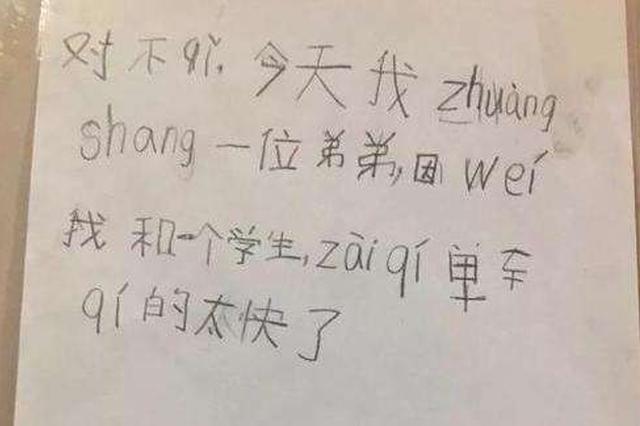 对不qǐ,今天我zhuàng
shang一位弟弟,因wéi
我和一个学生,zàiqí单车
qí的太快了